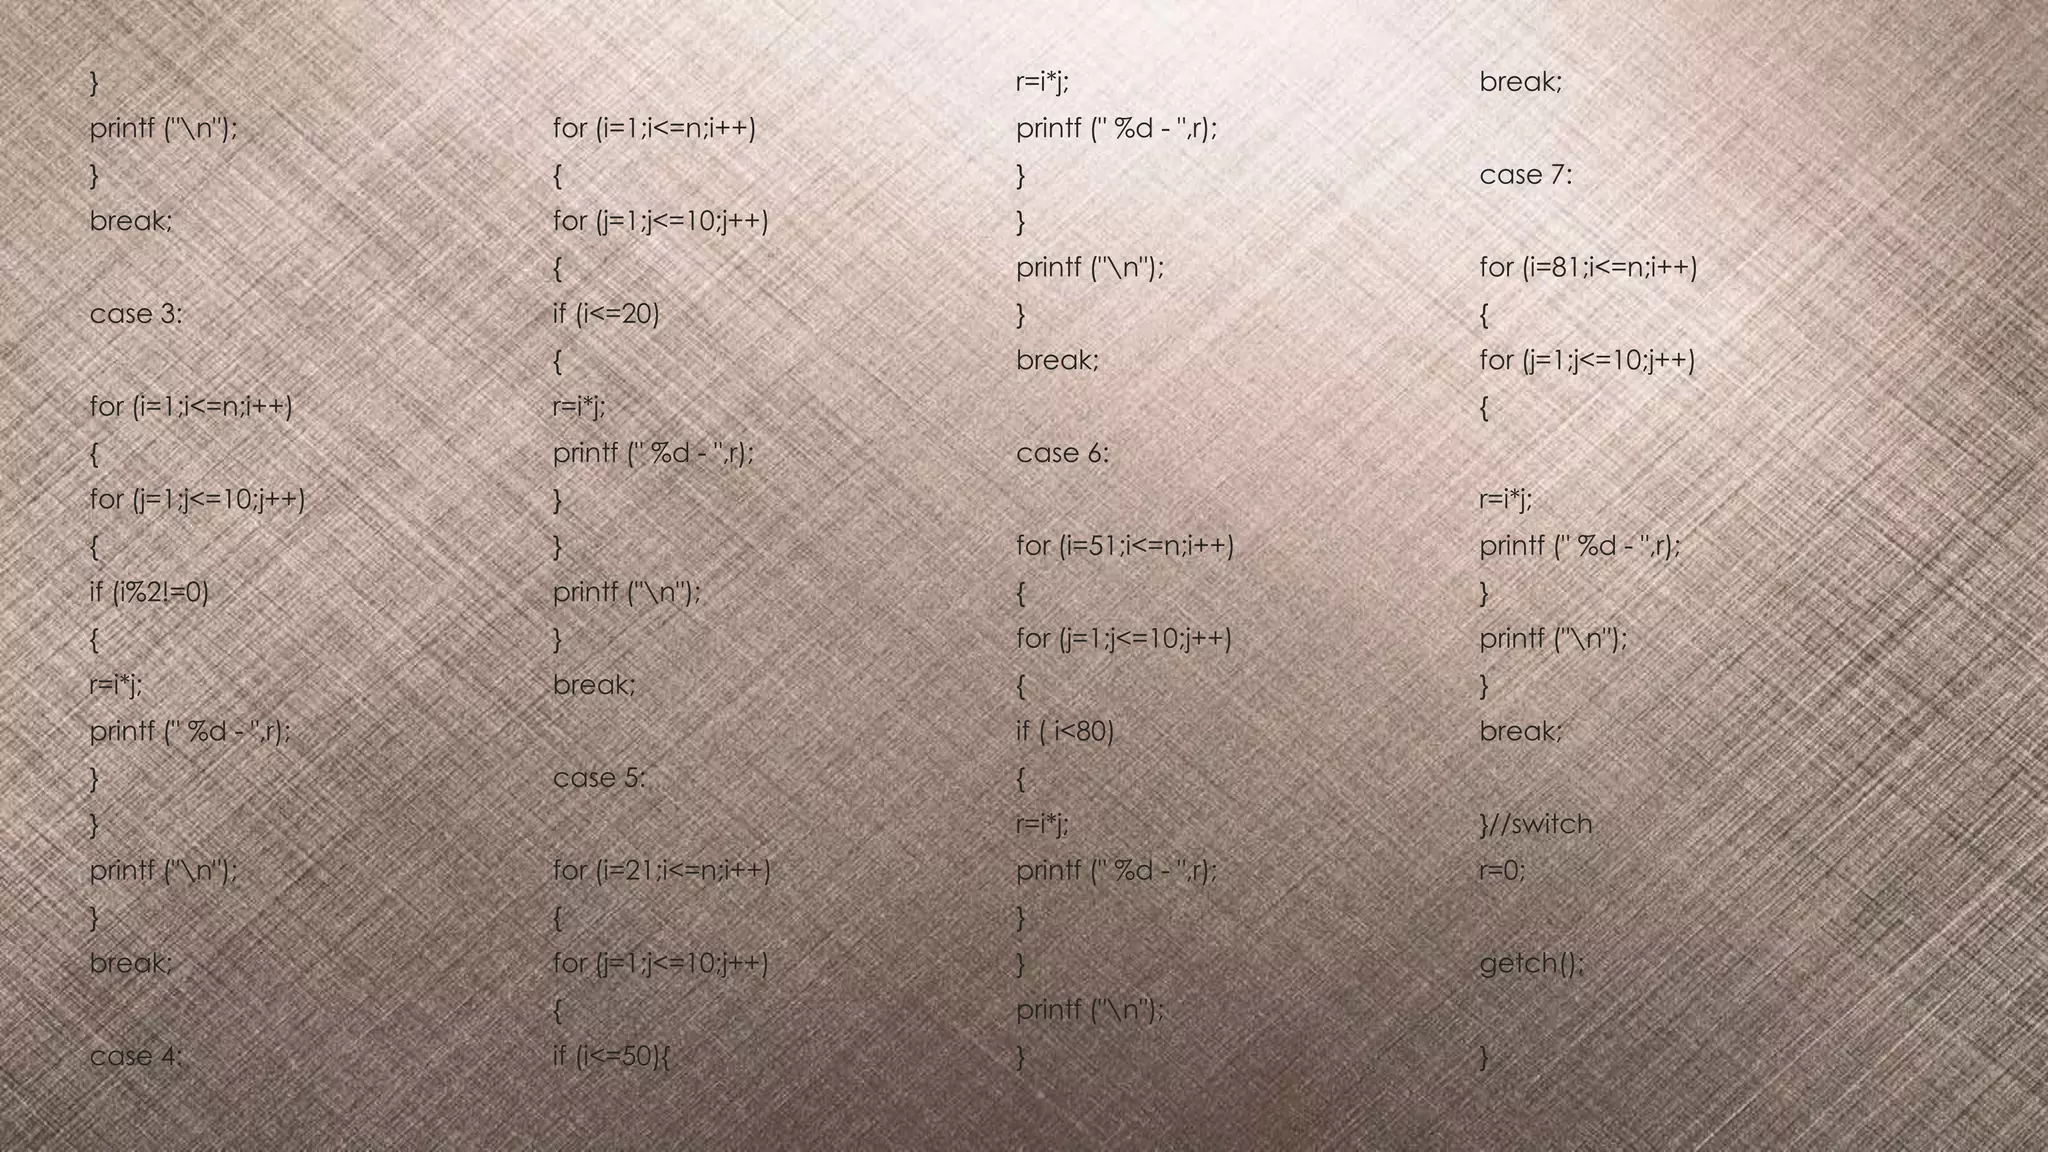 }
printf ("\n");
}
break;
case 3:
for (i=1;i<=n;i++)
{
for (j=1;j<=10;j++)
{
if (i%2!=0)
{
r=i*j;
printf (" %d - ",r);
}
}
printf ("\n");
}
break;
case 4:
for (i=1;i<=n;i++)
{
for (j=1;j<=10;j++)
{
if (i<=20)
{
r=i*j;
printf (" %d - ",r);
}
}
printf ("\n");
}
break;
case 5:
for (i=21;i<=n;i++)
{
for (j=1;j<=10;j++)
{
if (i<=50){
r=i*j;
printf (" %d - ",r);
}
}
printf ("\n");
}
break;
case 6:
for (i=51;i<=n;i++)
{
for (j=1;j<=10;j++)
{
if ( i<80)
{
r=i*j;
printf (" %d - ",r);
}
}
printf ("\n");
}
break;
case 7:
for (i=81;i<=n;i++)
{
for (j=1;j<=10;j++)
{
r=i*j;
printf (" %d - ",r);
}
printf ("\n");
}
break;
}//switch
r=0;
getch();
}